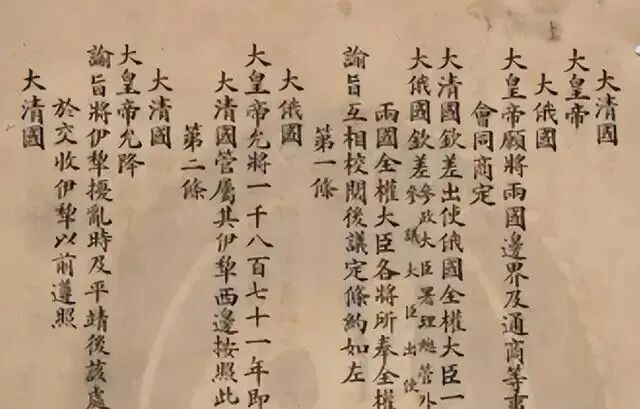 大清國
大皇帝
大俄國
大皇帝願將兩國邊界及通商等事
會同商定
大清國欽差出使俄國全權大臣一
大俄國欽差
參政大臣署理總管外
參議大臣出使
兩國全權大臣各將所奉全權
諭旨互相校閱後議定條約如左
第一條
大俄國
大皇帝允將一千八百七十一年即
大清國管屬其伊犁西邊按照此
第二條
大清國
大皇帝允降
諭旨將伊犁擾亂時及平靖後該處
於交收伊犁以前遵照
大清國